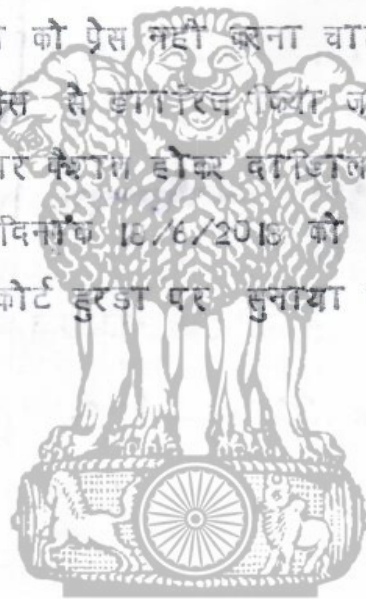 को प्रेस नहीं करना चा
से खारिज किया ज
होकर
दिनांक 18/6/2018 को
कोर्ट हुरडा पर सुनाया